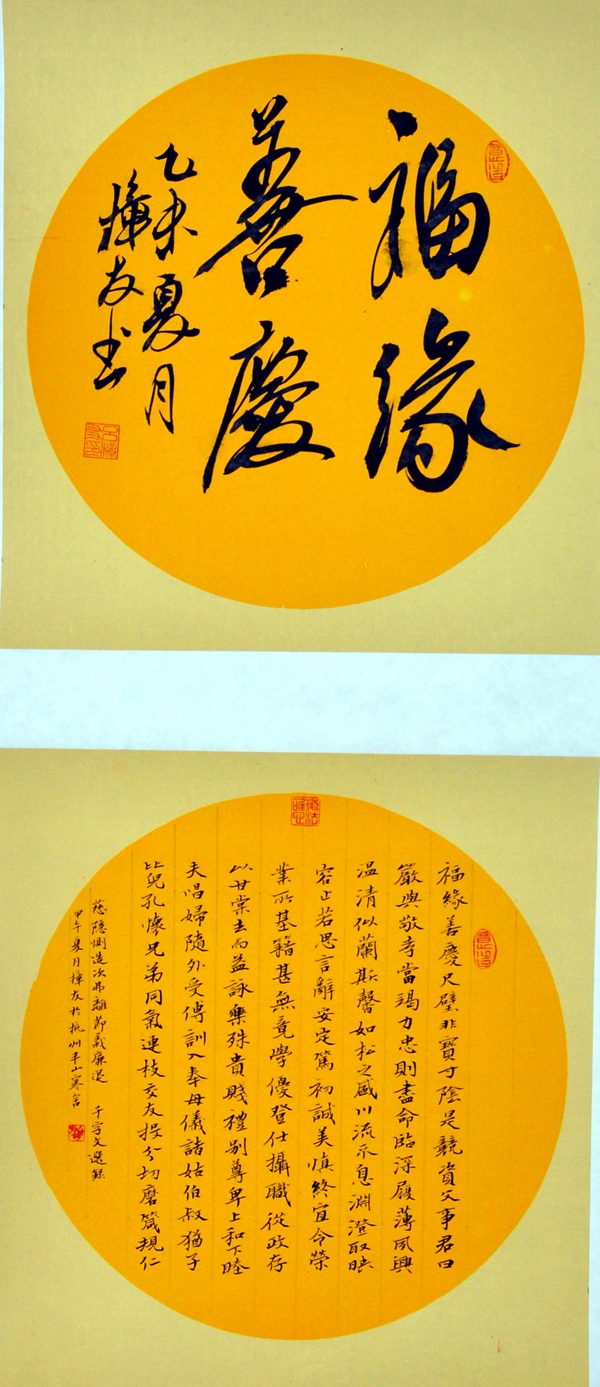 福緣
善慶
乙未夏月
樟友书
福緣善慶尺璧非寶寸陰是競資父事君曰
嚴與敬孝當竭力忠則盡命臨深履薄夙興
温清似蘭斯馨如松之盛川流不息淵澄取暎
容止若思言辭安定篤初誠美慎終宜令榮
業所基籍甚無竟學優登仕攝職從政存
以甘棠去而益詠樂殊貴賤禮别尊卑上和下睦
夫唱婦隨外受傅訓入奉母儀諸姑伯叔猶子
比兒孔懷兄弟同氣連枝交友投分切磨箴規仁
慈隱惻造次弗離節義廉退 千字文選録
甲午夏月樟友於杭州半山寒舍